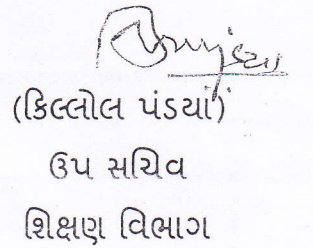 (કિલ્લોલ પંડયા)
ઉપ સચિવ
શિક્ષણ વિભાગ